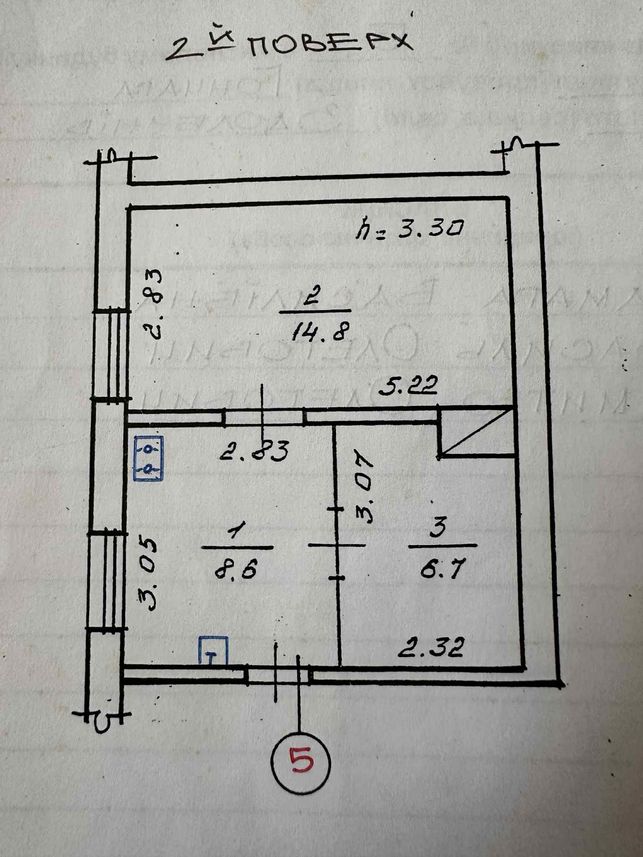 2й ПОВЕРХ
h = 3.30
2.83
2
14.8
5.22
2.83
3.07
1
8.6
3
6.7
3.05
2.32
5